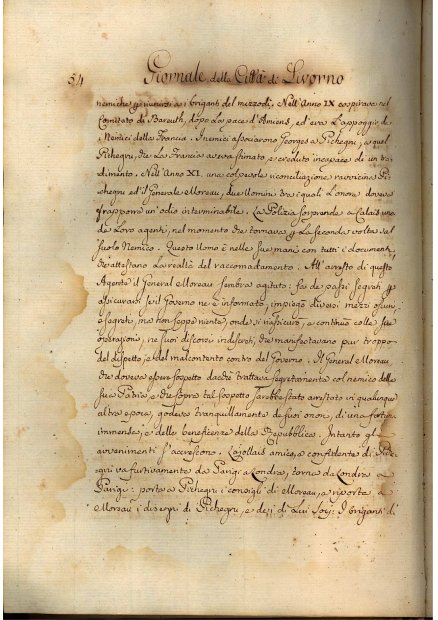 54 Giornale della Città di Livorno
nemiche p riunirsi a i briganti del mezzodì. Nell'Anno IX cospirava nel
Comitato di Baruth, dopo la pace d'Amiens, ed era l'appoggio de
Nemici della Francia. I nemici associarono Georges a Pichegru, a quel
Pichegru, che la Francia aveva stimato e creduto incapace di un tra=
dimento. Nell'Anno XI. una colpevole riconciliazione ravvicina Pi=
chegru ed il Generale Moreau, due Uomini tra i quali l'onore doveva
frapporre un'odio interminabile. La Polizia sorprende a Calais uno
de loro agenti, nel momento che tornava p la seconda volta sul
suolo Nemico. Questo Uomo è nelle sue mani con tutti i documenti
che attestano la realtà del raccomodamento. All'arresto di questo
Agente il General Moreau sembra agitato: fa de passi segreti p
assicurarsi se il Governo ne è informato, impiega diversi mezzi oscuri
e segreti, ma non seppe niente, onde si rassicurò, e continuò colle sue
operazioni, ne suoi discorsi indiscreti, che manifestavano pur troppo
del dispetto, e del malcontento contro del Governo. Il General Moreau
che doveva esser sospetto dacchè trattava segretamente col nemico della
sua Patria e che sopra tal sospetto sarebbe stato arrestato in qualunque
altra epoca, godeva tranquillamente de suoi onori, di una fortuna
immensa, e delle beneficenze della Repubblica. Intanto gli
avvenimenti s'accrescono. Lajollais amico, e confidente di Piche=
gru va furtivamente da Parigi a Londra, torna da Londra a
Parigi: porta a Pichegru i consigli di Moreau, e riporta a
Moreau i disegni di Pichegru, e de i di lui soci: I briganti di